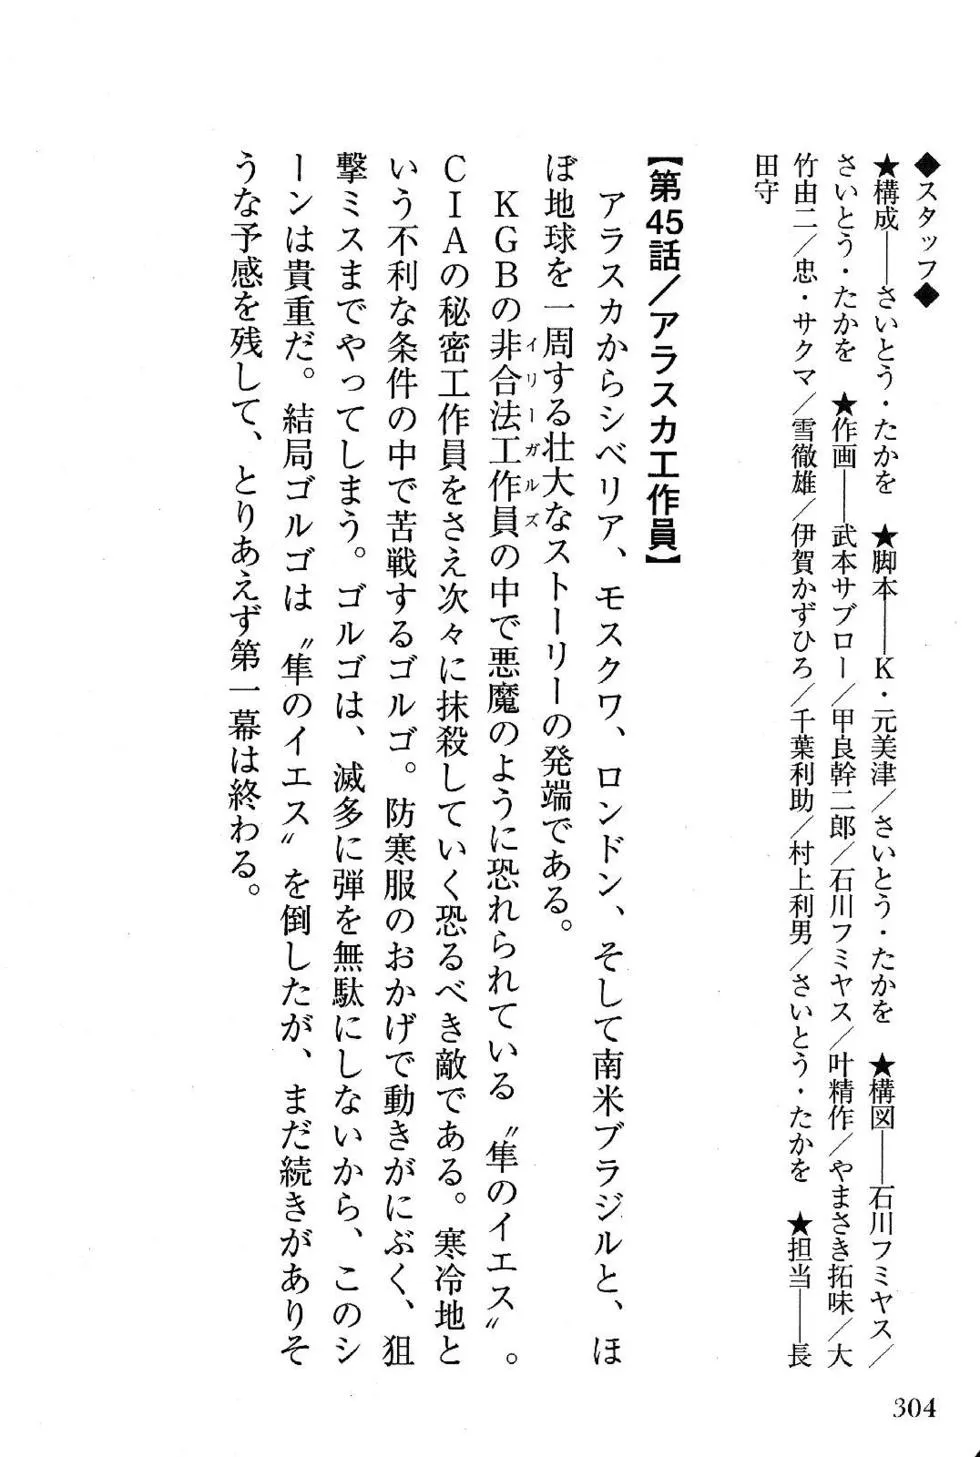 ◆スタッフ◆
★構成――さいとう・たかを　★脚本――K・元美津／さいとう・たかを　★構図――石川フミヤス／
さいとう・たかを　★作画――武本サブロー／甲良幹二郎／石川フミヤス／叶精作／やまさき拓味／大
竹由二／忠・サクマ／雪徹雄／伊賀かずひろ／千葉利助／村上利男／さいとう・たかを　★担当――長
田守
【第45話／アラスカ工作員】
アラスカからシベリア、モスクワ、ロンドン、そして南米ブラジルと、ほ
ぼ地球を一周する壮大なストーリーの発端である。
KGBの非合法工作員イリーガルズの中で悪魔のように恐れられている〝隼のイエス〟。
CIAの秘密工作員をさえ次々に抹殺していく恐るべき敵である。寒冷地と
いう不利な条件の中で苦戦するゴルゴ。防寒服のおかげで動きがにぶく、狙
撃ミスまでやってしまう。ゴルゴは、滅多に弾を無駄にしないから、このシ
ーンは貴重だ。結局ゴルゴは〝隼のイエス〟を倒したが、まだ続きがありそ
うな予感を残して、とりあえず第一幕は終わる。
304